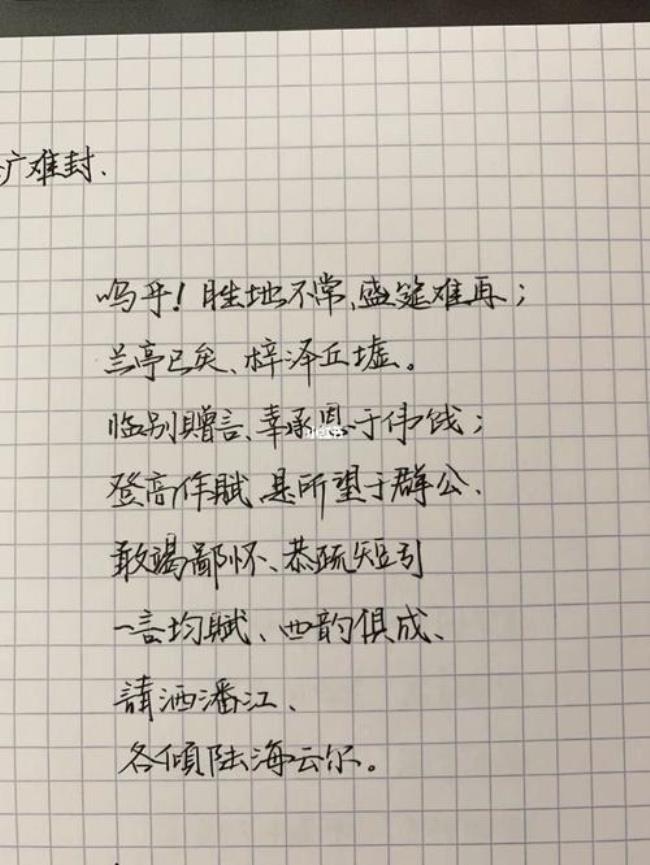 广难封、
呜乎！胜地不常、盛筵难再；
兰亭已矣、梓泽丘墟。
临别赠言、幸承恩于伟饯；
登高作赋、是所望于群公、
敢竭鄙怀、恭疏短引
一言均赋、四韵俱成、
請洒潘江、
各倾陆海云尔。